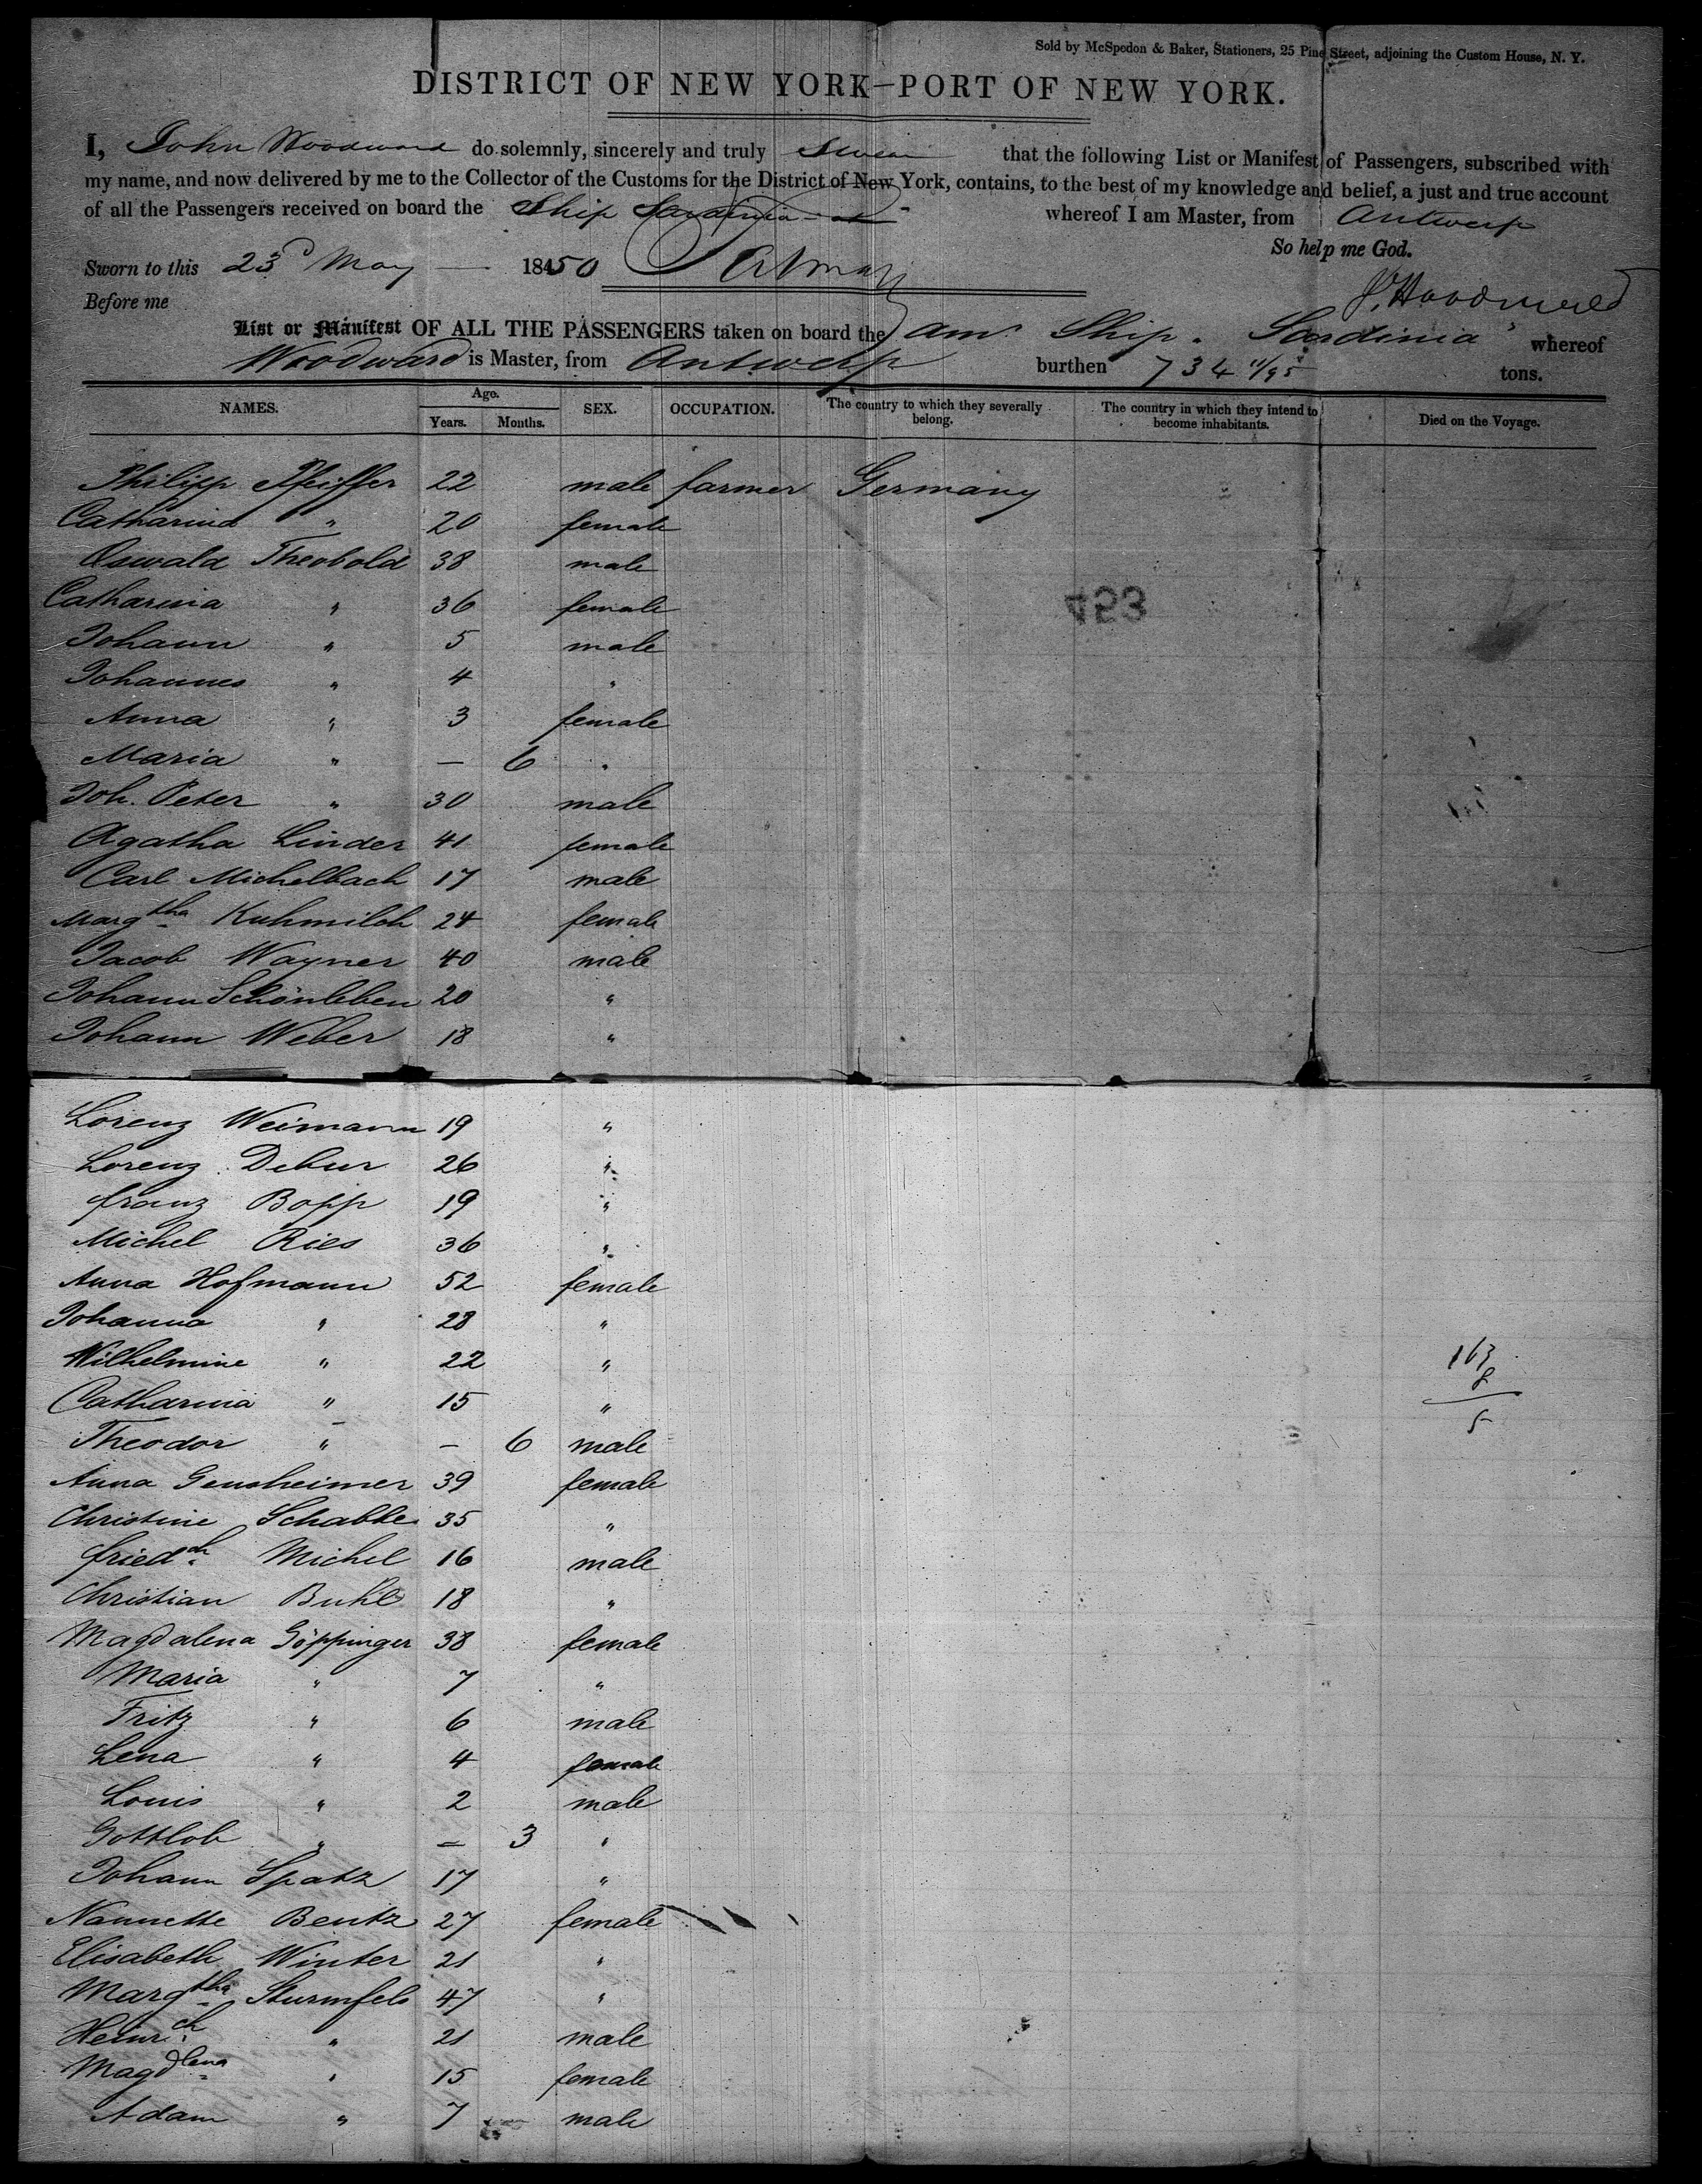 Sold by McSpedon & Baker, Stationers, 25 Pine Street, adjoining the Custom House, N. Y.
DISTRICT OF NEW YORK—PORT OF NEW YORK.
I, John Woodward do solemnly, sincerely and truly swear that the following List or Manifest of Passengers, subscribed with
my name, and now delivered by me to the Collector of the Customs for the District of New York, contains, to the best of my knowledge and belief, a just and true account
of all the Passengers received on board the Ship Sardinia whereof I am Master, from Antwerp
So help me God.
Sworn to this 23d May 1850
J. Woodward
Before me
List or Manifest OF ALL THE PASSENGERS taken on board the Am. Ship Sardinia whereof
Woodward is Master, from Antwerp burthen 734 11/95 tons.
NAMES. Age. Years. Months. SEX. OCCUPATION. The country to which they severally belong. The country in which they intend to become inhabitants. Died on the Voyage.
Philipp Pfeiffer 22 male farmer Germany
Catharina " 20 female
Oswald Theobold 38 male
Catharina " 36 female
453
Johann " 5 male
Johannes " 4 "
Anna " 3 female
Maria " — 6 "
Joh. Peter " 30 male
Agatha Linder 41 female
Carl Michelbach 17 male
Margtha Kuhmilch 24 female
Jacob Wagner 40 male
Johann Schönleben 20 "
Johann Weber 18 "
Lorenz Weimann 19 "
Lorenz Debur 26 "
franz Bopp 19 "
Michel Ries 36 "
Anna Hofmann 52 female
Johanna " 28 "
Wilhelmine " 22 " 163
Catharina " 15 " 8
Theodor " — 6 male 5
Anna Gensheimer 39 female
Christine Schabke 35 "
friedch Michel 16 male
Christian Buhl 18 "
Magdalena Göppinger 38 female
Maria " 7 "
Fritz " 6 male
Lena " 4 female
Louis " 2 male
Gottlob " — 3 "
Johann Spatz 17 "
Nannette Bentz 27 female
Elisabeth Winter 21 "
Margtha Sturmfels 47 "
Heinrch " 21 male
Magdlena " 15 female
Adam " 7 male